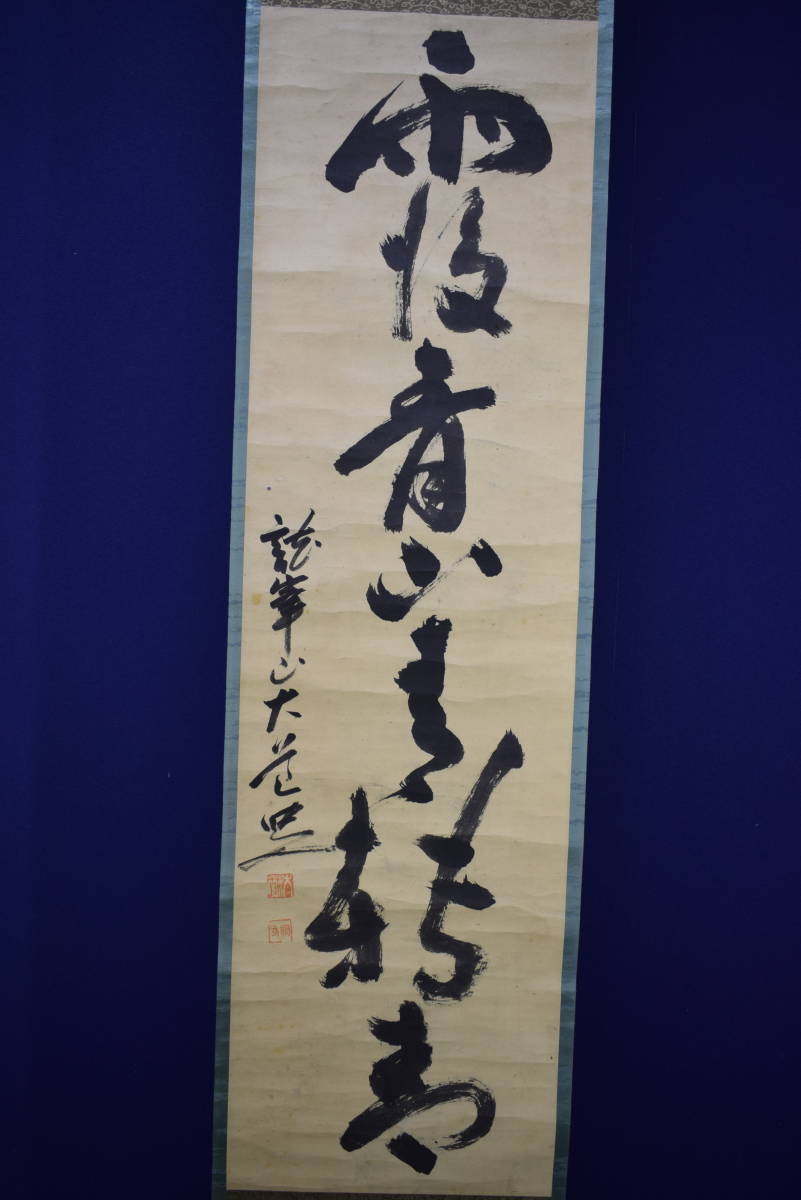 雨後青山青轉青
龍峯山大道